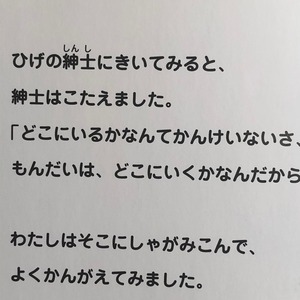 ひげの紳士にきいてみると、
紳士はこたえました。
「どこにいるかなんてかんけいないさ、
もんだいは、どこにいくかなんだから
わたしはそこにしゃがみこんで、
よくかんがえてみました。